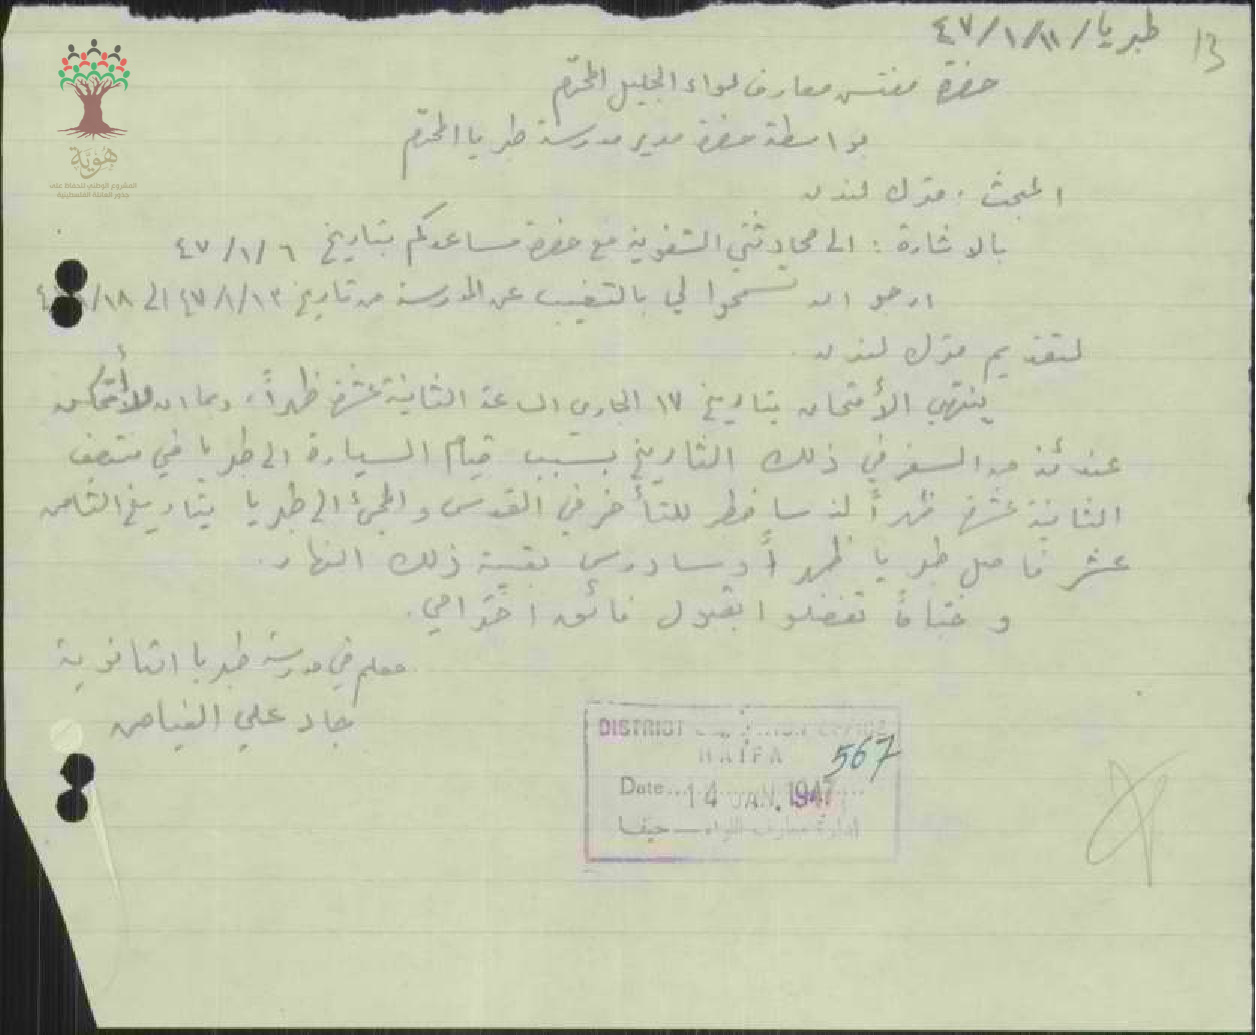 13
طبريا / ١١ / ١ / ٤٧
حضرة مفتش معارف لواء الجليل المحترم
بواسطة حضرة مدير مدرسة طبريا المحترم
المبحث : مترك لندن
بالاشارة : الى محادثتي الشفوية مع حضرة مساعدكم بتاريخ ٦ / ١ / ٤٧
ارجو ان تسمحوا لي بالتغيب عن المدرسة من تاريخ ١٣ / ١ / ٤٧ الى ١٨ /
لتقديم مترك لندن .
ينتهي الأمتحان بتاريخ ١٧ الجاري الساعة الثانية عشرة ظهراً ، وبما ان لا أتمكن
عندئذ من السفر في ذلك التاريخ بسبب قيام السيارة الى طبريا في منتصف
الثانية عشرة ظهراً لذ سأضطر للتأخر في القدس والمجيء الى طبريا بتاريخ الثامن
عشر فاصل طبريا ظهراً وسادرس بقية ذلك النهار .
وختاماً تفضلوا بقبول فائق احترامي .
معلم في مدرسة طبريا الثانوية
علي الفياض
DISTRICT EDUCATION OFFICE
HAIFA
567
Date 14 JAN. 1947
ادارة معارف اللواء — حيفا
هُوِيَّة
المشروع الوطني للحفاظ على
جذور العائلة الفلسطينية